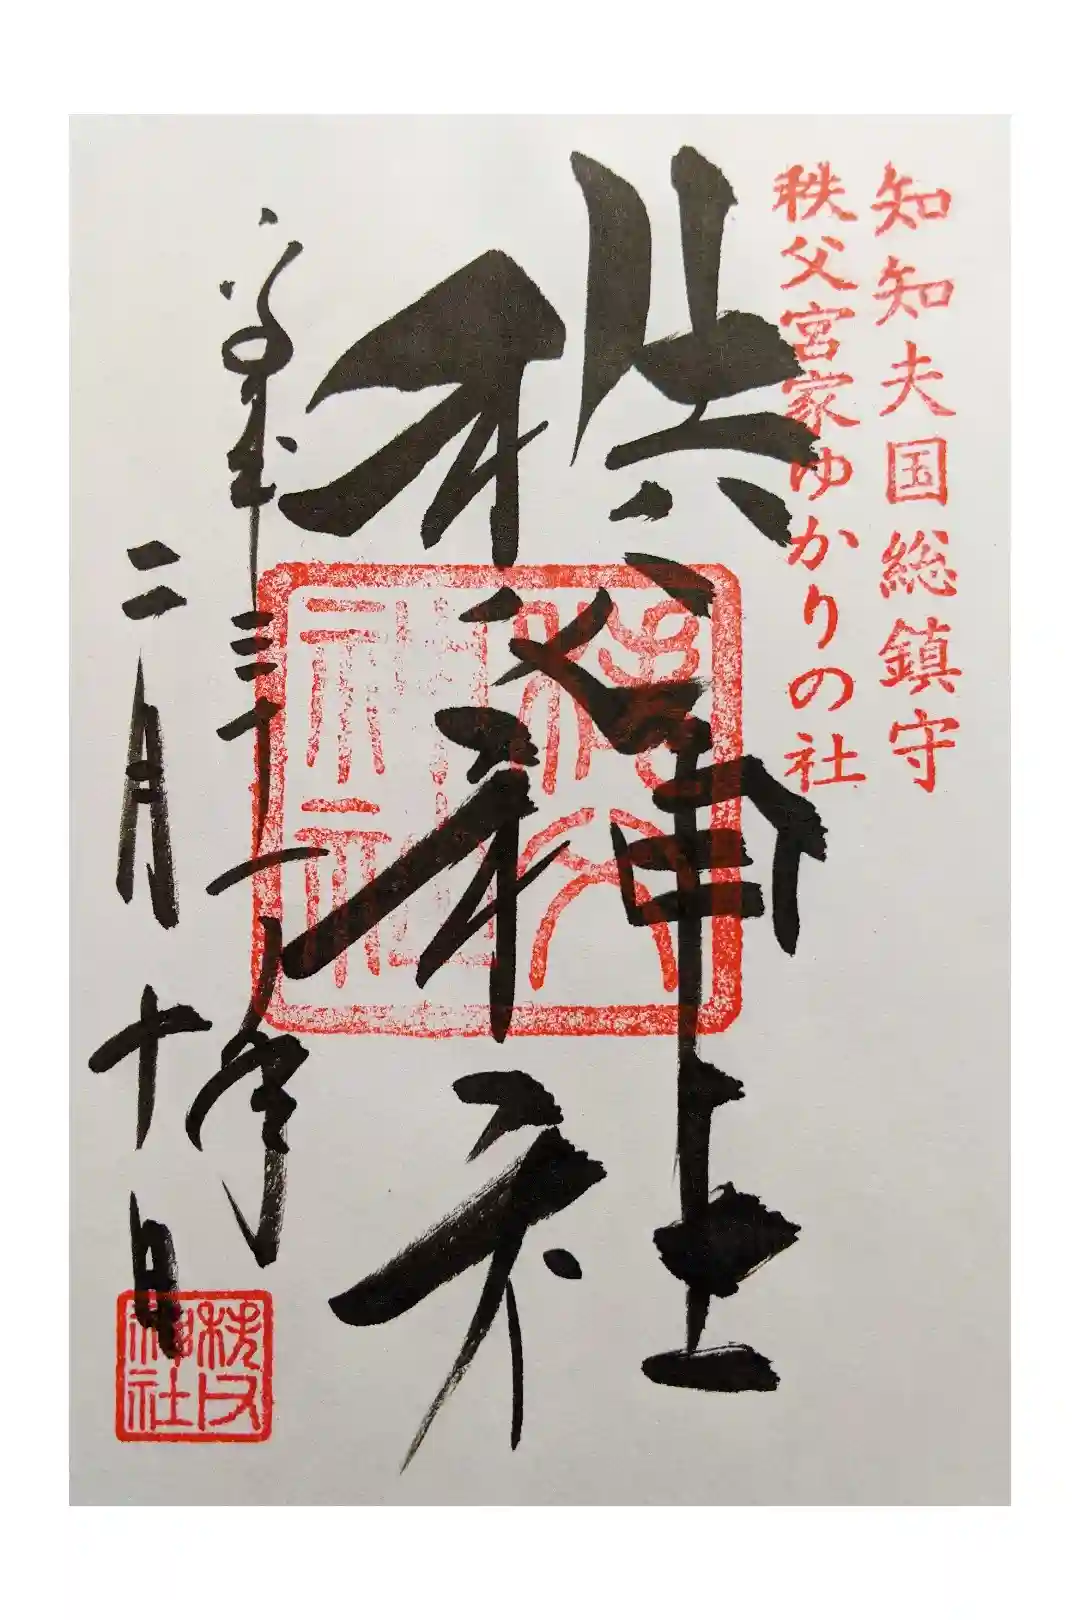 知知夫国総鎮守
秩父宮家ゆかりの社
秩父神社
秩父神社
平成三十一年
二月十日
秩父神社